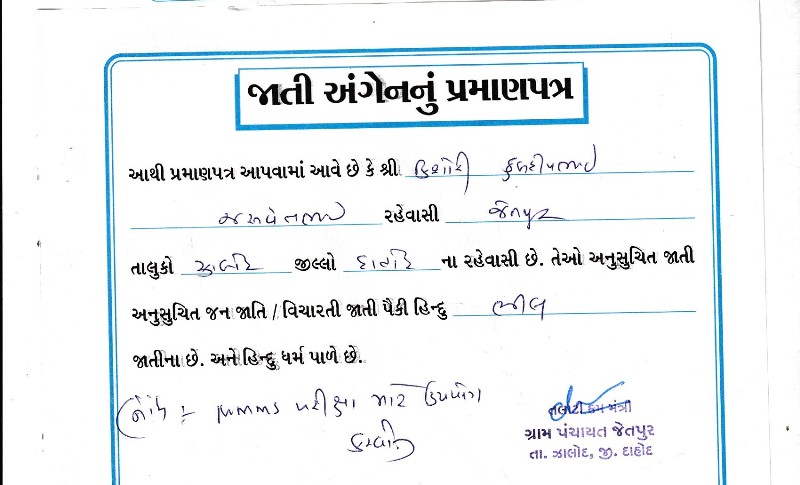 જાતી અંગેનનું પ્રમાણપત્ર
આથી પ્રમાણપત્ર આપવામાં આવે છે કે શ્રી કિશોરી કુલદીપભાઈ
જશવંતભાઈ રહેવાસી જેતપુર
તાલુકો ઝાલોદ જીલ્લો દાહોદ ના રહેવાસી છે. તેઓ અનુસુચિત જાતી
અનુસુચિત જન જાતિ / વિચારતી જાતી પૈકી હિન્દુ ભીલ
જાતીના છે. અને હિન્દુ ધર્મ પાળે છે.
નોંધ :- NMMS પરીક્ષા માટે ઉપયોગ
કરવો
તલાટી કમ મંત્રી
ગ્રામ પંચાયત જેતપુર
તા. ઝાલોદ, જી. દાહોદ